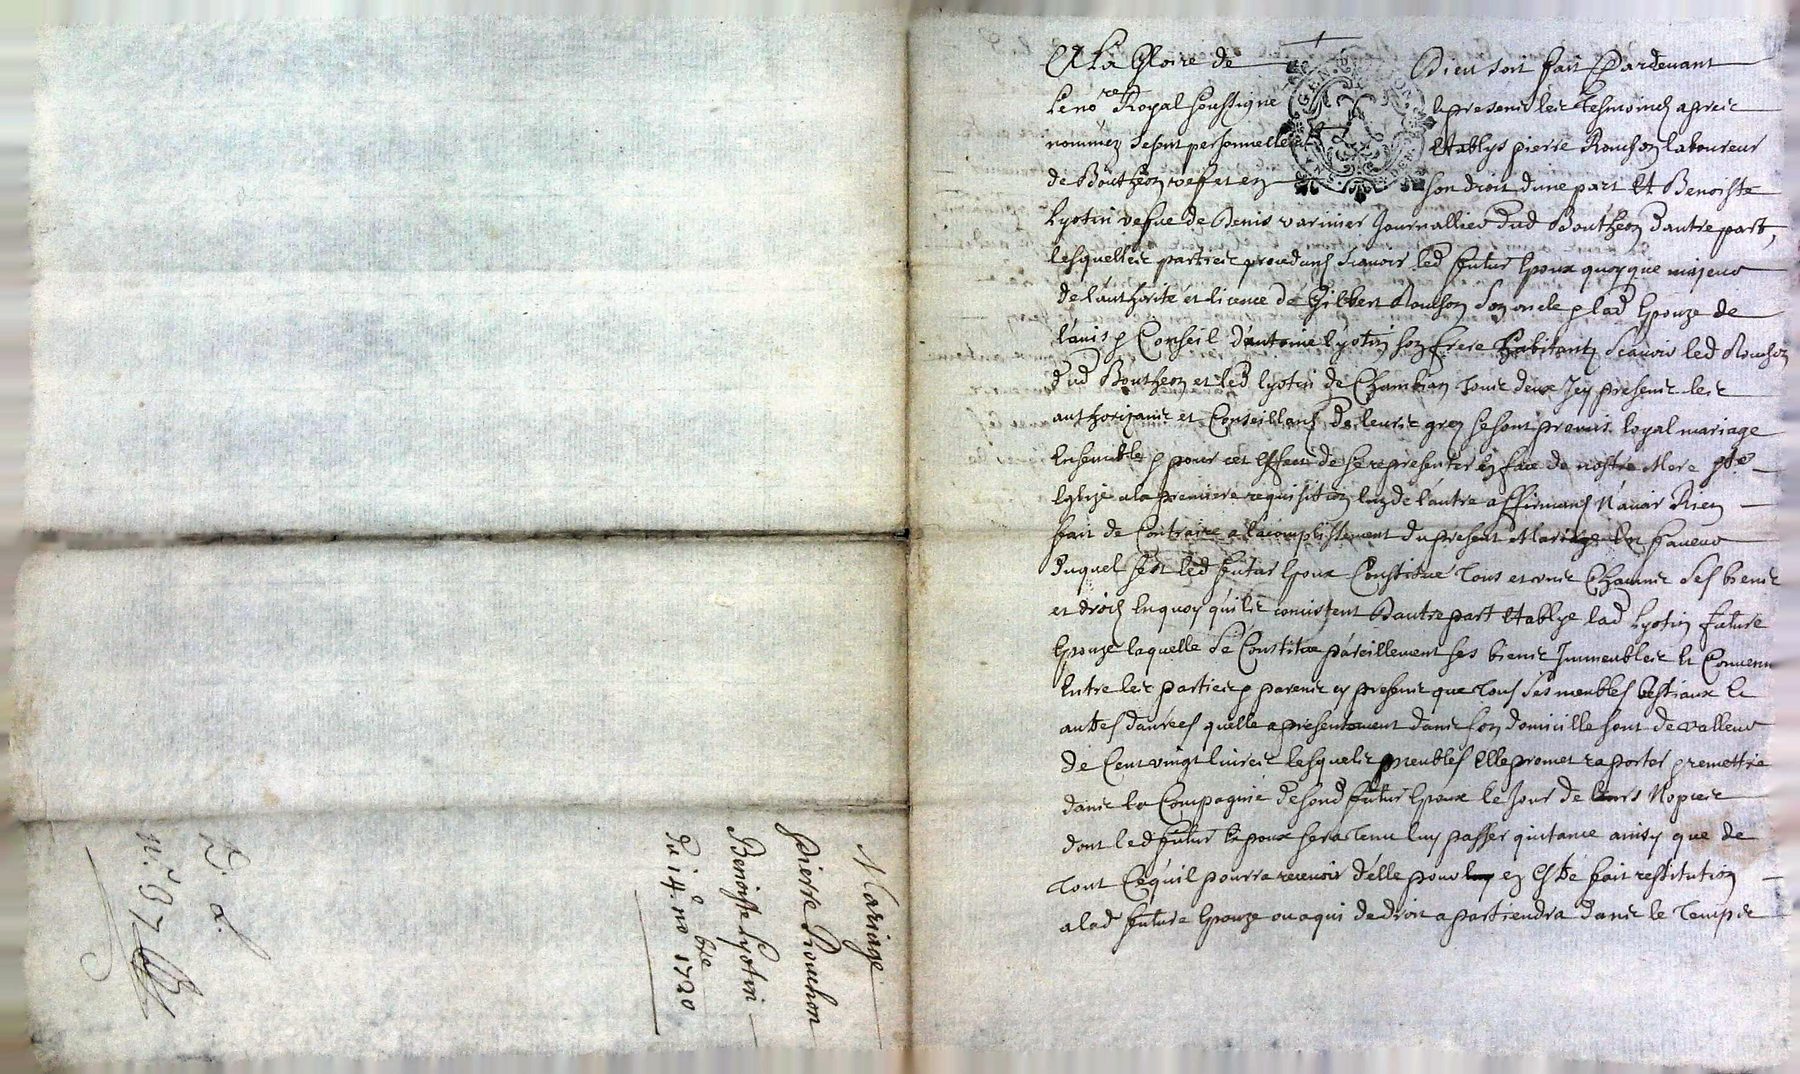 Mariage
Pierre Rouchon
Benoiste Lyotin
Du 14e nobre 1720
n.o 37
A La Gloire de Dieu soit fait Pardevant
Le nore Royal soussigné et presens les tesmoins apres
nommez se sont personnellemt Etablys pierre Rouchon laboureur
de Boutheon son droit dune part Et Benoiste
Lyotin vefue de Denis varinier Journallier dud Boutheon Dautre part,
lesquelles parties procedans scauoir led futur Epoux quoyque majeur
de l'authorité et licence de Gilbert Rouchon son oncle & lad Epouze de
l'auis & Conseil d'antoine lyotin son frere habitants scauoir led Rouchon
dud Boutheon et led lyotin de Chambian tous deux Icy presens les
authorizans et Conseillans de leurs grez se sont promis loyal mariage
Ensemble & pour cet Effect de se representer En face de nostre Mere Ste
Eglize a la premiere requisition lun de l'autre affirmans N'auoir Rien
fait de Contraire a lacomplissement du present Mariage En faueur
duquel sest led futur Epoux Constitué tous et uns Chacuns ses biens
et droits En quoy qu'ils consistent Dautre part Etablye lad Lyotin future
Epouze laquelle se Constitue pareillement ses biens Immeubles Et Convenu
Entre les parties & parens cy presens que tous ses meubles bestiaux Et
autres danrées quelle a presentement dans son domicille sont de valleur
de Cent vingt liures lesquels meubles Elle promet raporter & remettre
dans la Compagnie de sond futur Epoux le Jour de leurs Nopces
dont led futur Epoux sera tenu luy passer quitance ainsy que de
tout Cequil pourra receuoir d'elle pour en Estre fait restitution
a lad future Epouze ou a qui de droit apartiendra dans le temps